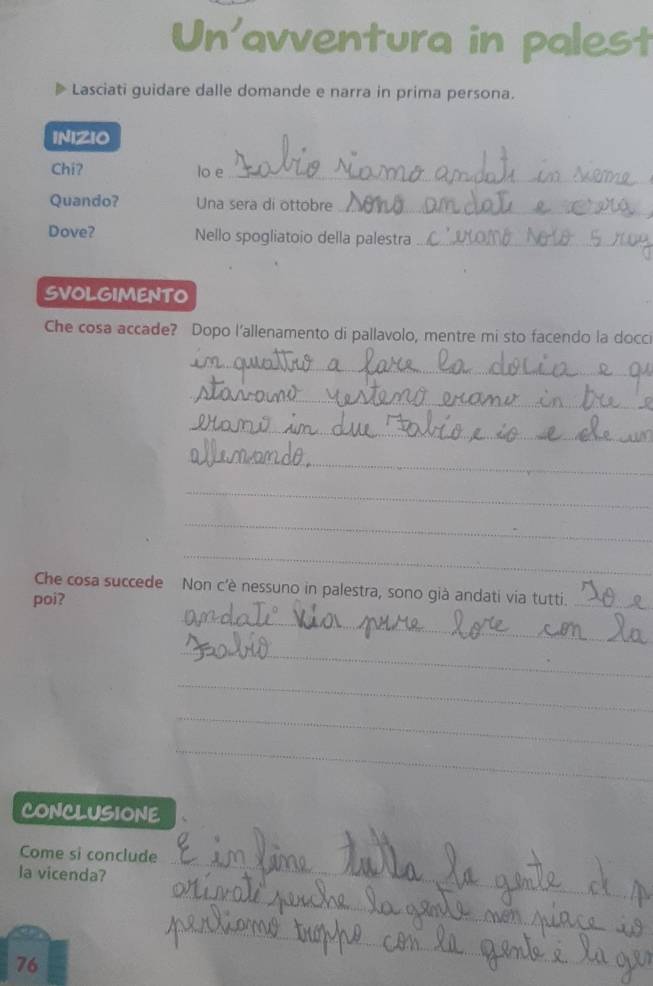 Un'avventura in palest
Lasciati guidare dalle domande e narra in prima persona.
INIZIO
Chi? Io e Fabio siamo andati in sieme
Quando? Una sera di ottobre sono andati e c'era
Dove? Nello spogliatoio della palestra c'erano solo 5 rag
SVOLGIMENTO
Che cosa accade? Dopo l'allenamento di pallavolo, mentre mi sto facendo la docci
in quattro a fare la docia e qu
stavano erano in tre e
erano in due Fabio e io e che un
allenando.
Che cosa succede Non c'è nessuno in palestra, sono già andati via tutti. Io e
poi? andati via pure lore con la
Fabio
CONCLUSIONE
Come si conclude E in fine tutta la gente
la vicenda? arivati perche la gente non piace io
perliamo troppo con la gente e la gen
76